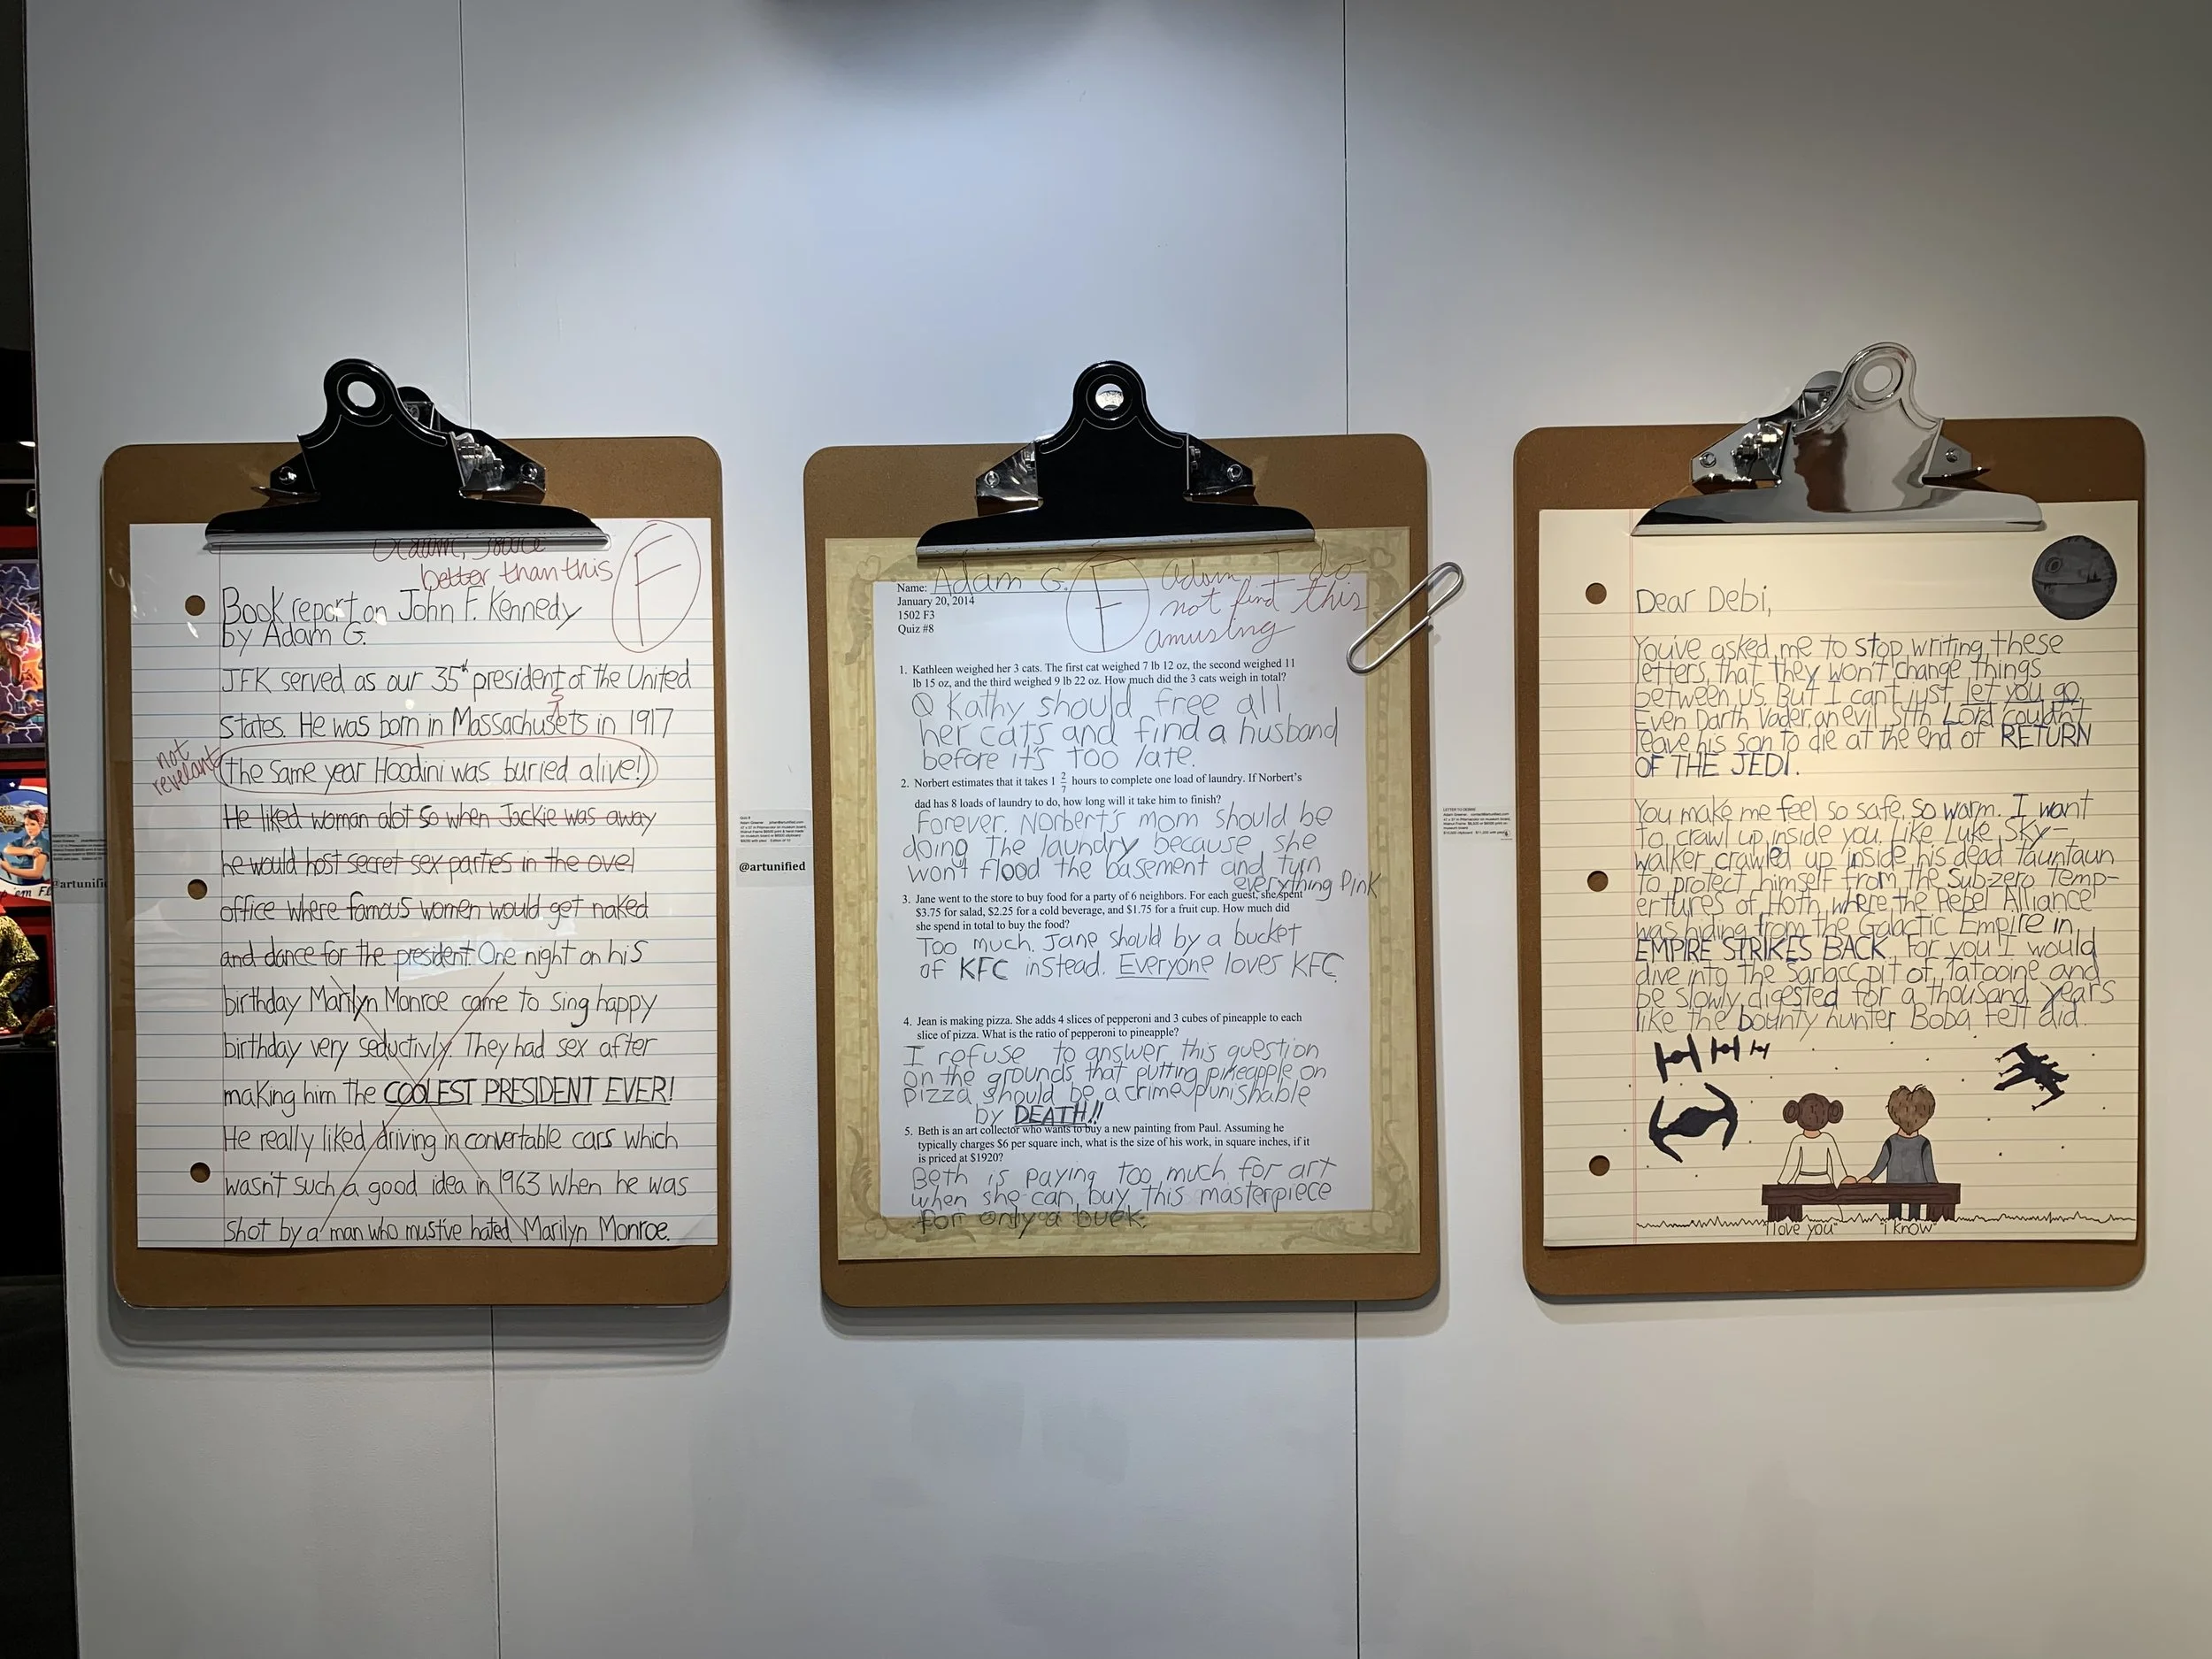 better than this
F
Book report on John F. Kennedy
by Adam G.
JFK served as our 35th president of the United
s
States. He was born in Massachusets in 1917
not
revelant
(the same year Hoodini was buried alive!)
He liked woman alot so when Jackie was away
he would host secret sex parties in the ovel
office where famous women would get naked
and dance for the president. One night on his
birthday Marilyn Monroe came to sing happy
birthday very seductivly. They had sex after
making him the COOLEST PRESIDENT EVER!
He really liked driving in convertable cars which
wasn't such a good idea in 1963 when he was
shot by a man who mustive hated Marilyn Monroe.
@artunified
Name: Adam G.
F
Adam, I do
not find this
amusing
January 20, 2014
1502 F3
Quiz #8
1. Kathleen weighed her 3 cats. The first cat weighed 7 lb 12 oz, the second weighed 11
lb 15 oz, and the third weighed 9 lb 22 oz. How much did the 3 cats weigh in total?
Kathy should free all
her cats and find a husband
before it's too late.
2. Norbert estimates that it takes 1 2/7 hours to complete one load of laundry. If Norbert's
dad has 8 loads of laundry to do, how long will it take him to finish?
Forever. Norbert's mom should be
doing the laundry because she
won't flood the basement and turn
everything pink
3. Jane went to the store to buy food for a party of 6 neighbors. For each guest, she spent
$3.75 for salad, $2.25 for a cold beverage, and $1.75 for a fruit cup. How much did
she spend in total to buy the food?
Too much. Jane should by a bucket
of KFC instead. Everyone loves KFC.
4. Jean is making pizza. She adds 4 slices of pepperoni and 3 cubes of pineapple to each
slice of pizza. What is the ratio of pepperoni to pineapple?
I refuse to answer this question
on the grounds that putting pineapple on
pizza should be a crime punishable
by DEATH!!
5. Beth is an art collector who wants to buy a new painting from Paul. Assuming he
typically charges $6 per square inch, what is the size of his work, in square inches, if it
is priced at $1920?
Beth is paying too much for art
when she can buy this masterpiece
for only a buck.
Dear Debi,
You've asked me to stop writing these
letters, that they won't change things
between us. But I cant just let you go.
Even Darth Vader, an evil Sith Lord couldn't
leave his son to die at the end of RETURN
OF THE JEDI.
You make me feel so safe, so warm. I want
to crawl up inside you, like Luke Sky-
walker crawled up inside his dead Tauntaun
to protect himself from the sub-zero temp-
ertures of Hoth, where the Rebel Alliance
was hiding from the Galactic Empire in
EMPIRE STRIKES BACK. For you I would
dive into the Sarlacc pit of Tatooine and
be slowly digested for a thousand years
like the bounty hunter Boba Fett did.
"I love you" "I know"